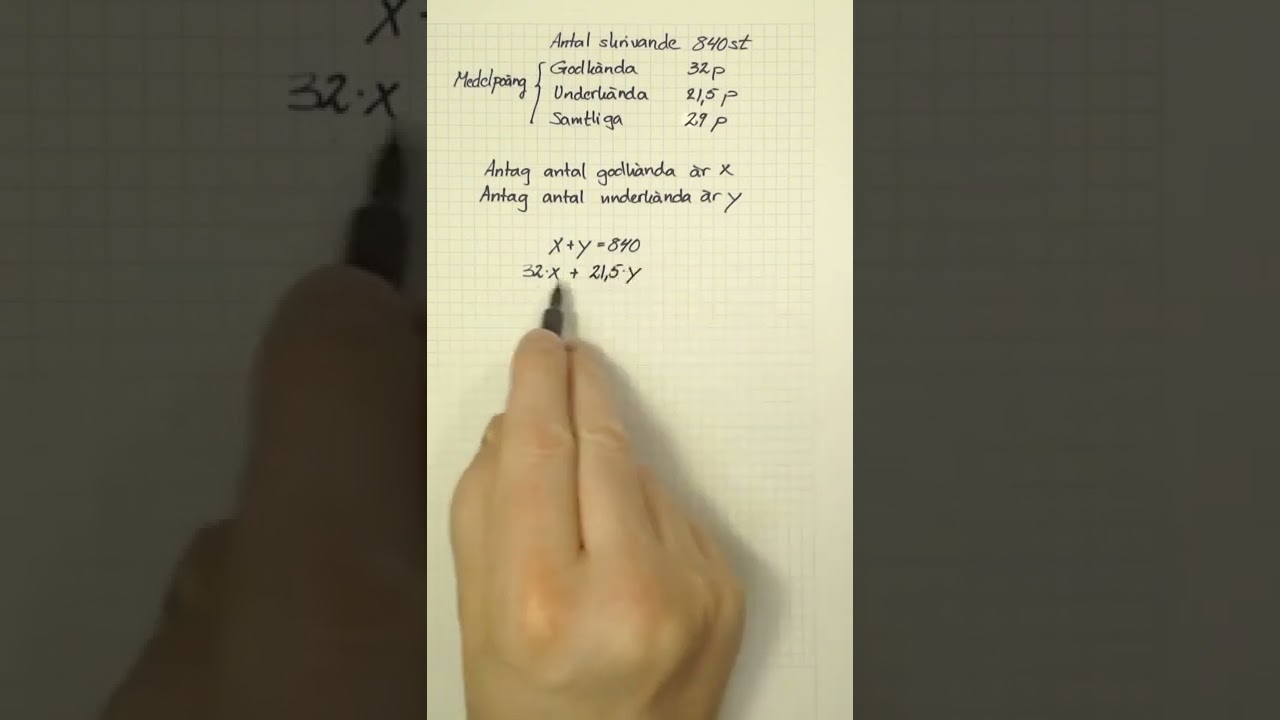 Antal skrivande 840st
Medelpoäng
Godkända 32p
Underkända 21,5 p
Samtliga 29 p
Antag antal godkända är x
Antag antal underkända är y
x+y=840
32·x + 21,5·y
x
32·x